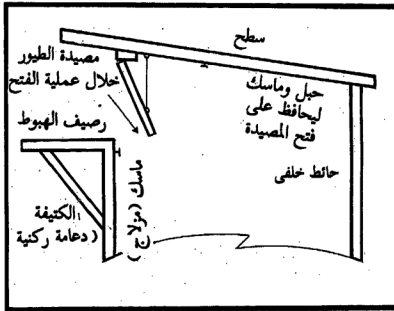 سطح
مصيدة الطيور
خلال عملية الفتح
حبل وماسك
ليحافظ على
فتح المصيدة
رصيف الهبوط
حائط خلفى
ماسك (مزلاج)
الكتيفة
(دعامة ركنية